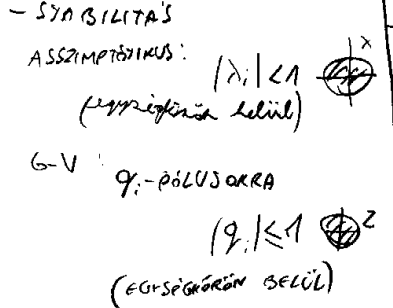 - STABILITÁS
ASSZIMPTOTIKUS:
|λᵢ| < 1 λ
(egységkörön belül)
G-V :
qᵢ-PÓLUSOKRA
|qᵢ| ≤ 1 Z
(EGYSÉGKÖRÖN BELÜL)